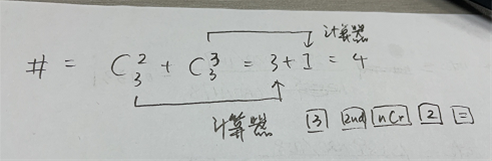 计算器
# = C₃² + C₃³ = 3+1 = 4
计算器 [3] [2nd] [nCr] [2] [=]